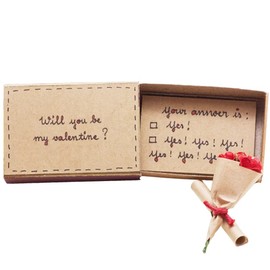 Will you be
my valentine?
Your answer is:
Yes!
Yes! Yes! Yes!
Yes! Yes! Ye